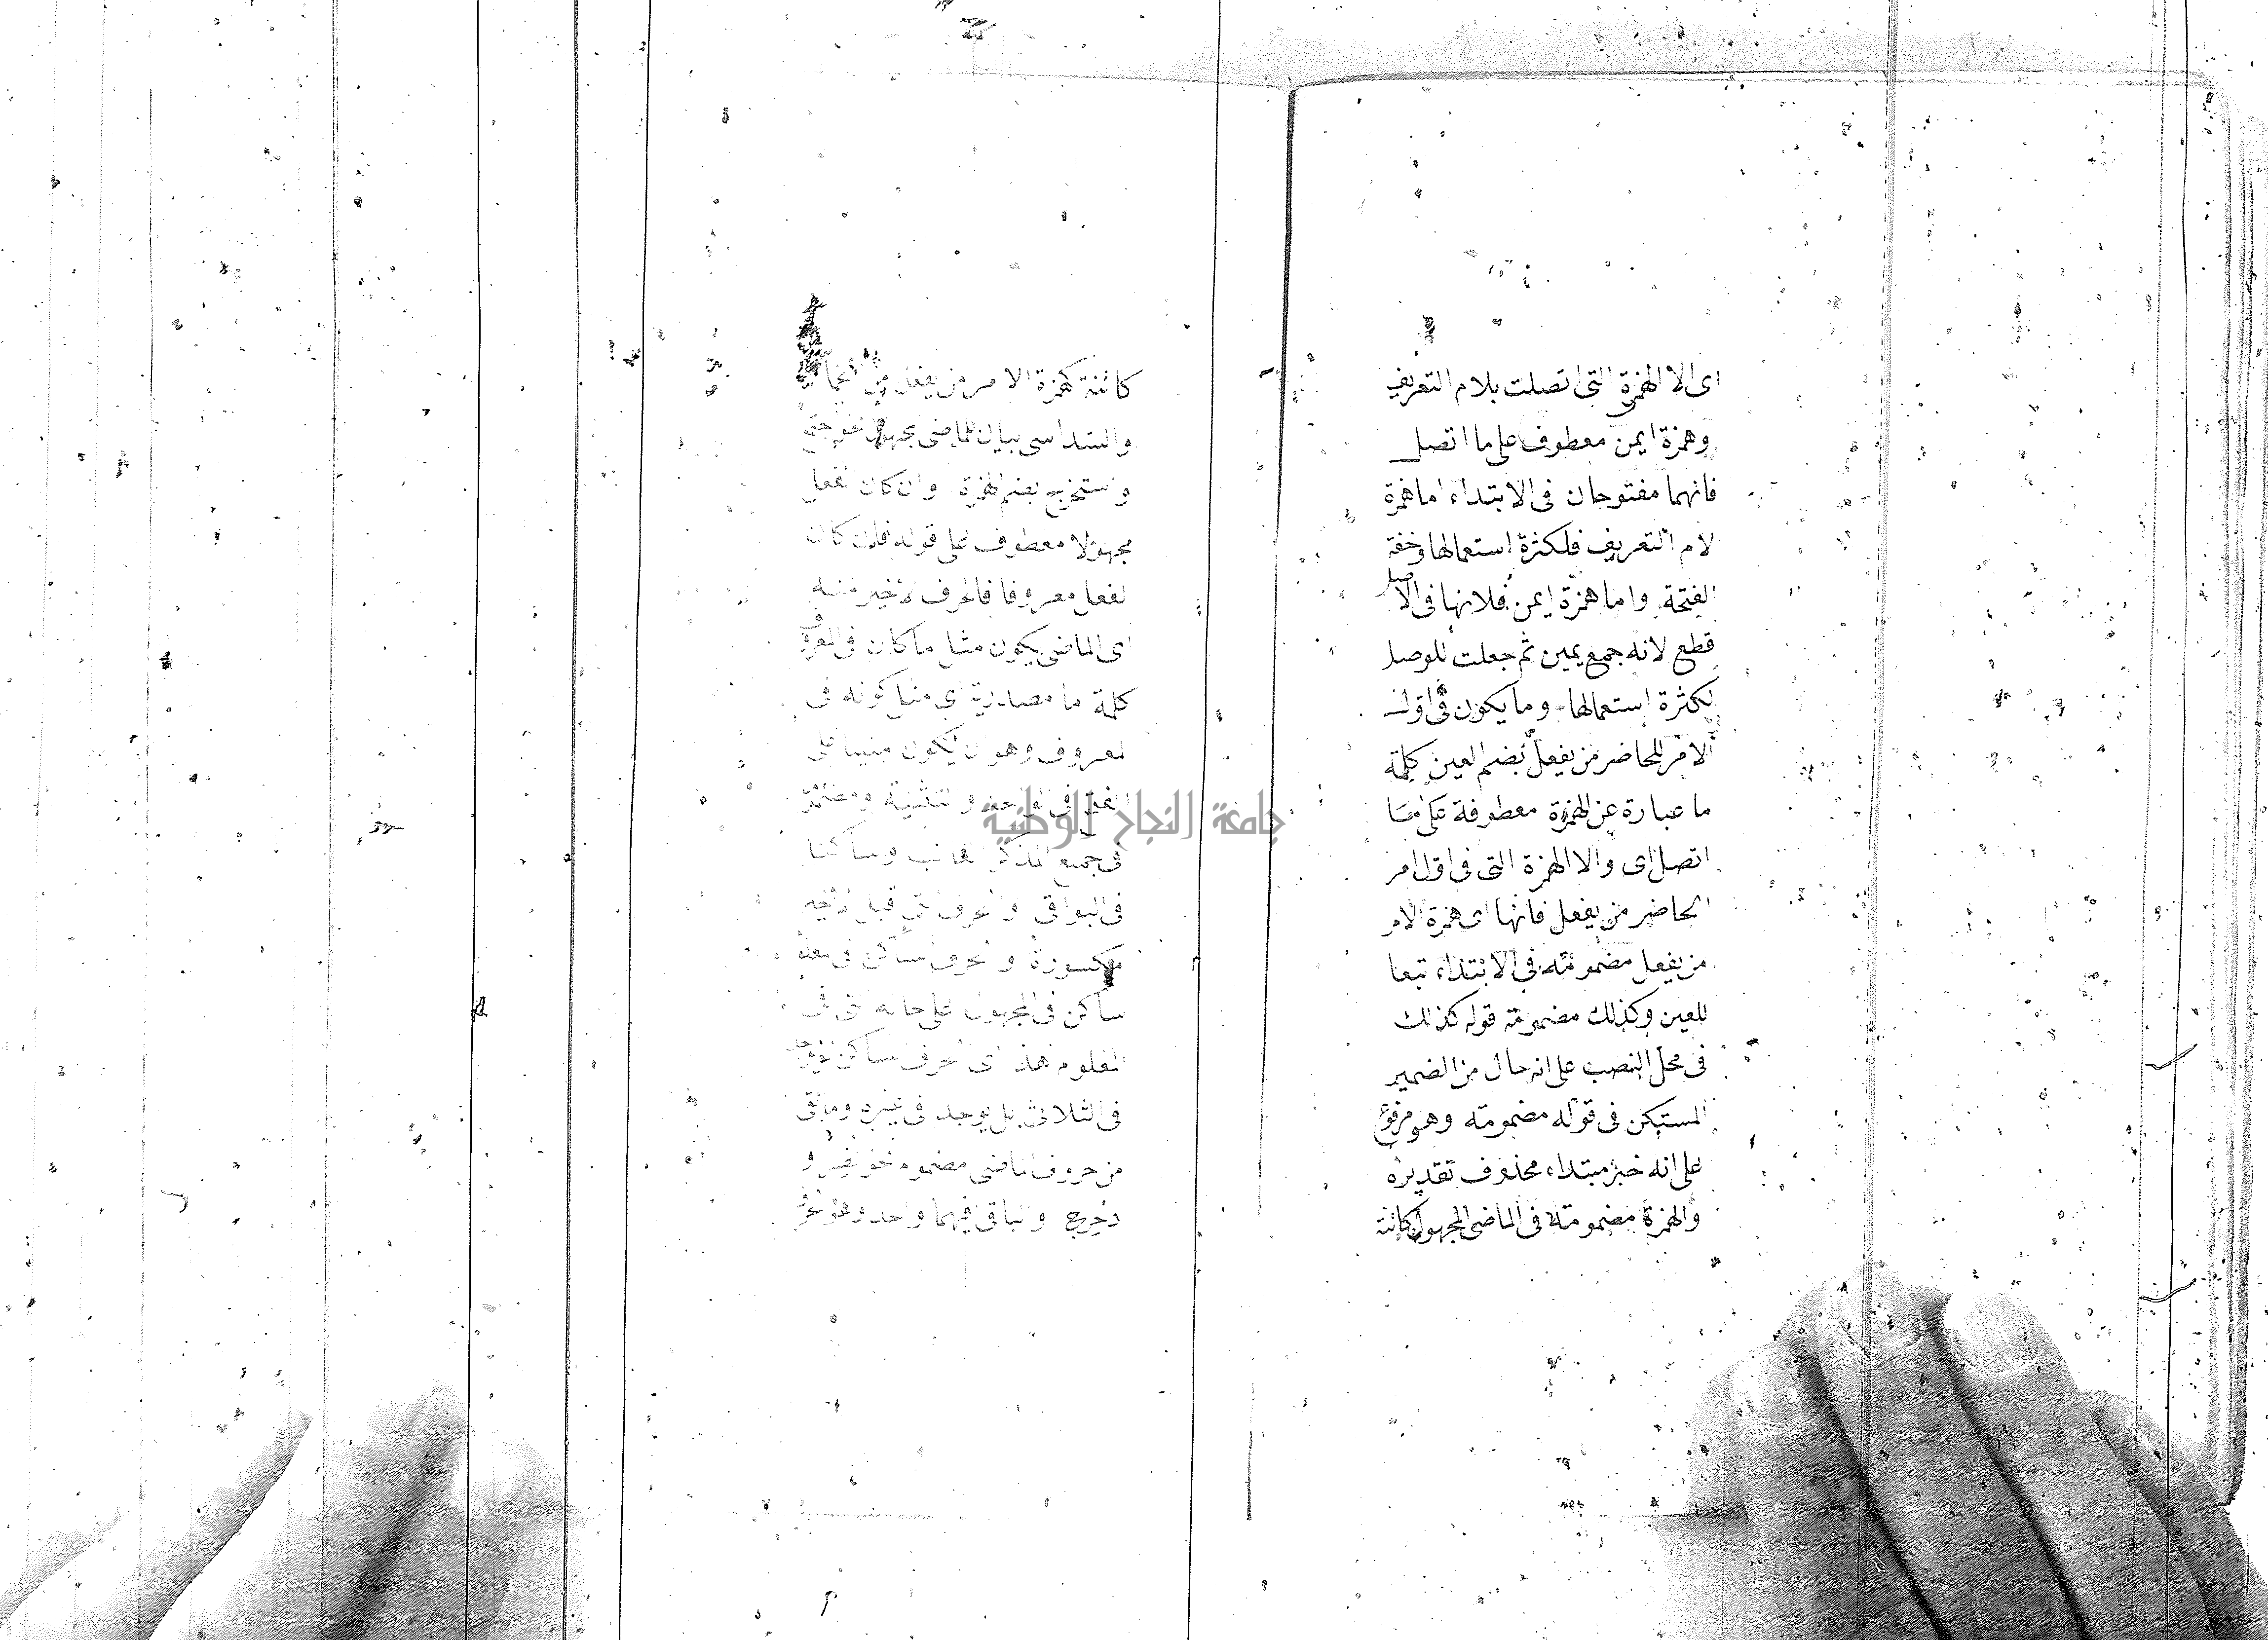 اى الا الهمزة التى اتصلت بلام التعريف
وهمزة ايمن معطوف على ما اتصل
فانهما مفتوحان فى الابتداء اما همزة
لام التعريف فلكثرة استعمالها وخفة
الفتحة واما همزة ايمن فلانها فى الاصل
قطع لانه جمع يمين ثم جعلت للوصل
لكثرة استعمالها وما يكون فى اول
الامر للحاضر من يفعل بضم العين كلمة
ما عبارة عن الهمزة معطوفة على ما
اتصل اى والا الهمزة التى فى اول امر
الحاضر من يفعل فانها اى همزة الامر
من يفعل مضمومة فى الابتداء تبعا
للعين وكذلك مضمومة قوله كذلك
فى محل النصب على انه حال من الضمير
المستكن فى قوله مضمومة وهو مرفوع
على انه خبر مبتداء محذوف تقديره
والهمزة مضمومة فى الماضى المجهول كائنة
كائنة كهمزة الامر من يفعل من
والسداسى بيان للماضى مجهول نحو
واستخرج بضم الهمزة وان كان الفعل
مجهولا معطوف على قوله فان كان
الفعل معروفا فالحرف الاخير منه
اى الماضى يكون مثل ما كان فى المعروف
كلمة ما مصدرية اى مثل كونه فى
المعروف وهو ان يكون مبنيا على
الفتح فى الواحد والتثنية ومضموما
فى جمع المذكر الغائب وساكنا
فى البواقى والحرف الذى قبل الاخير
مكسورة والحرف الساكن فى المعلوم
ساكن فى المجهول على حاله التى فى
المعلوم هذا اى الحرف الساكن
فى الثلاثى بل يوجد فى غيره وما بقى
من حروف الماضى مضموم نحو نصر و
دحرج والباقى فيهما واحد وهو
جامعة النجاح الوطنية